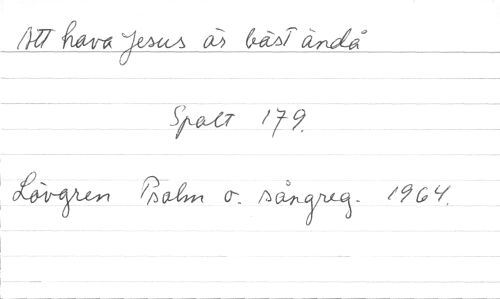 Att hava Jesus är bäst ändå
Spalt 179.
Lövgren Psalm o. sångreg. 1964.